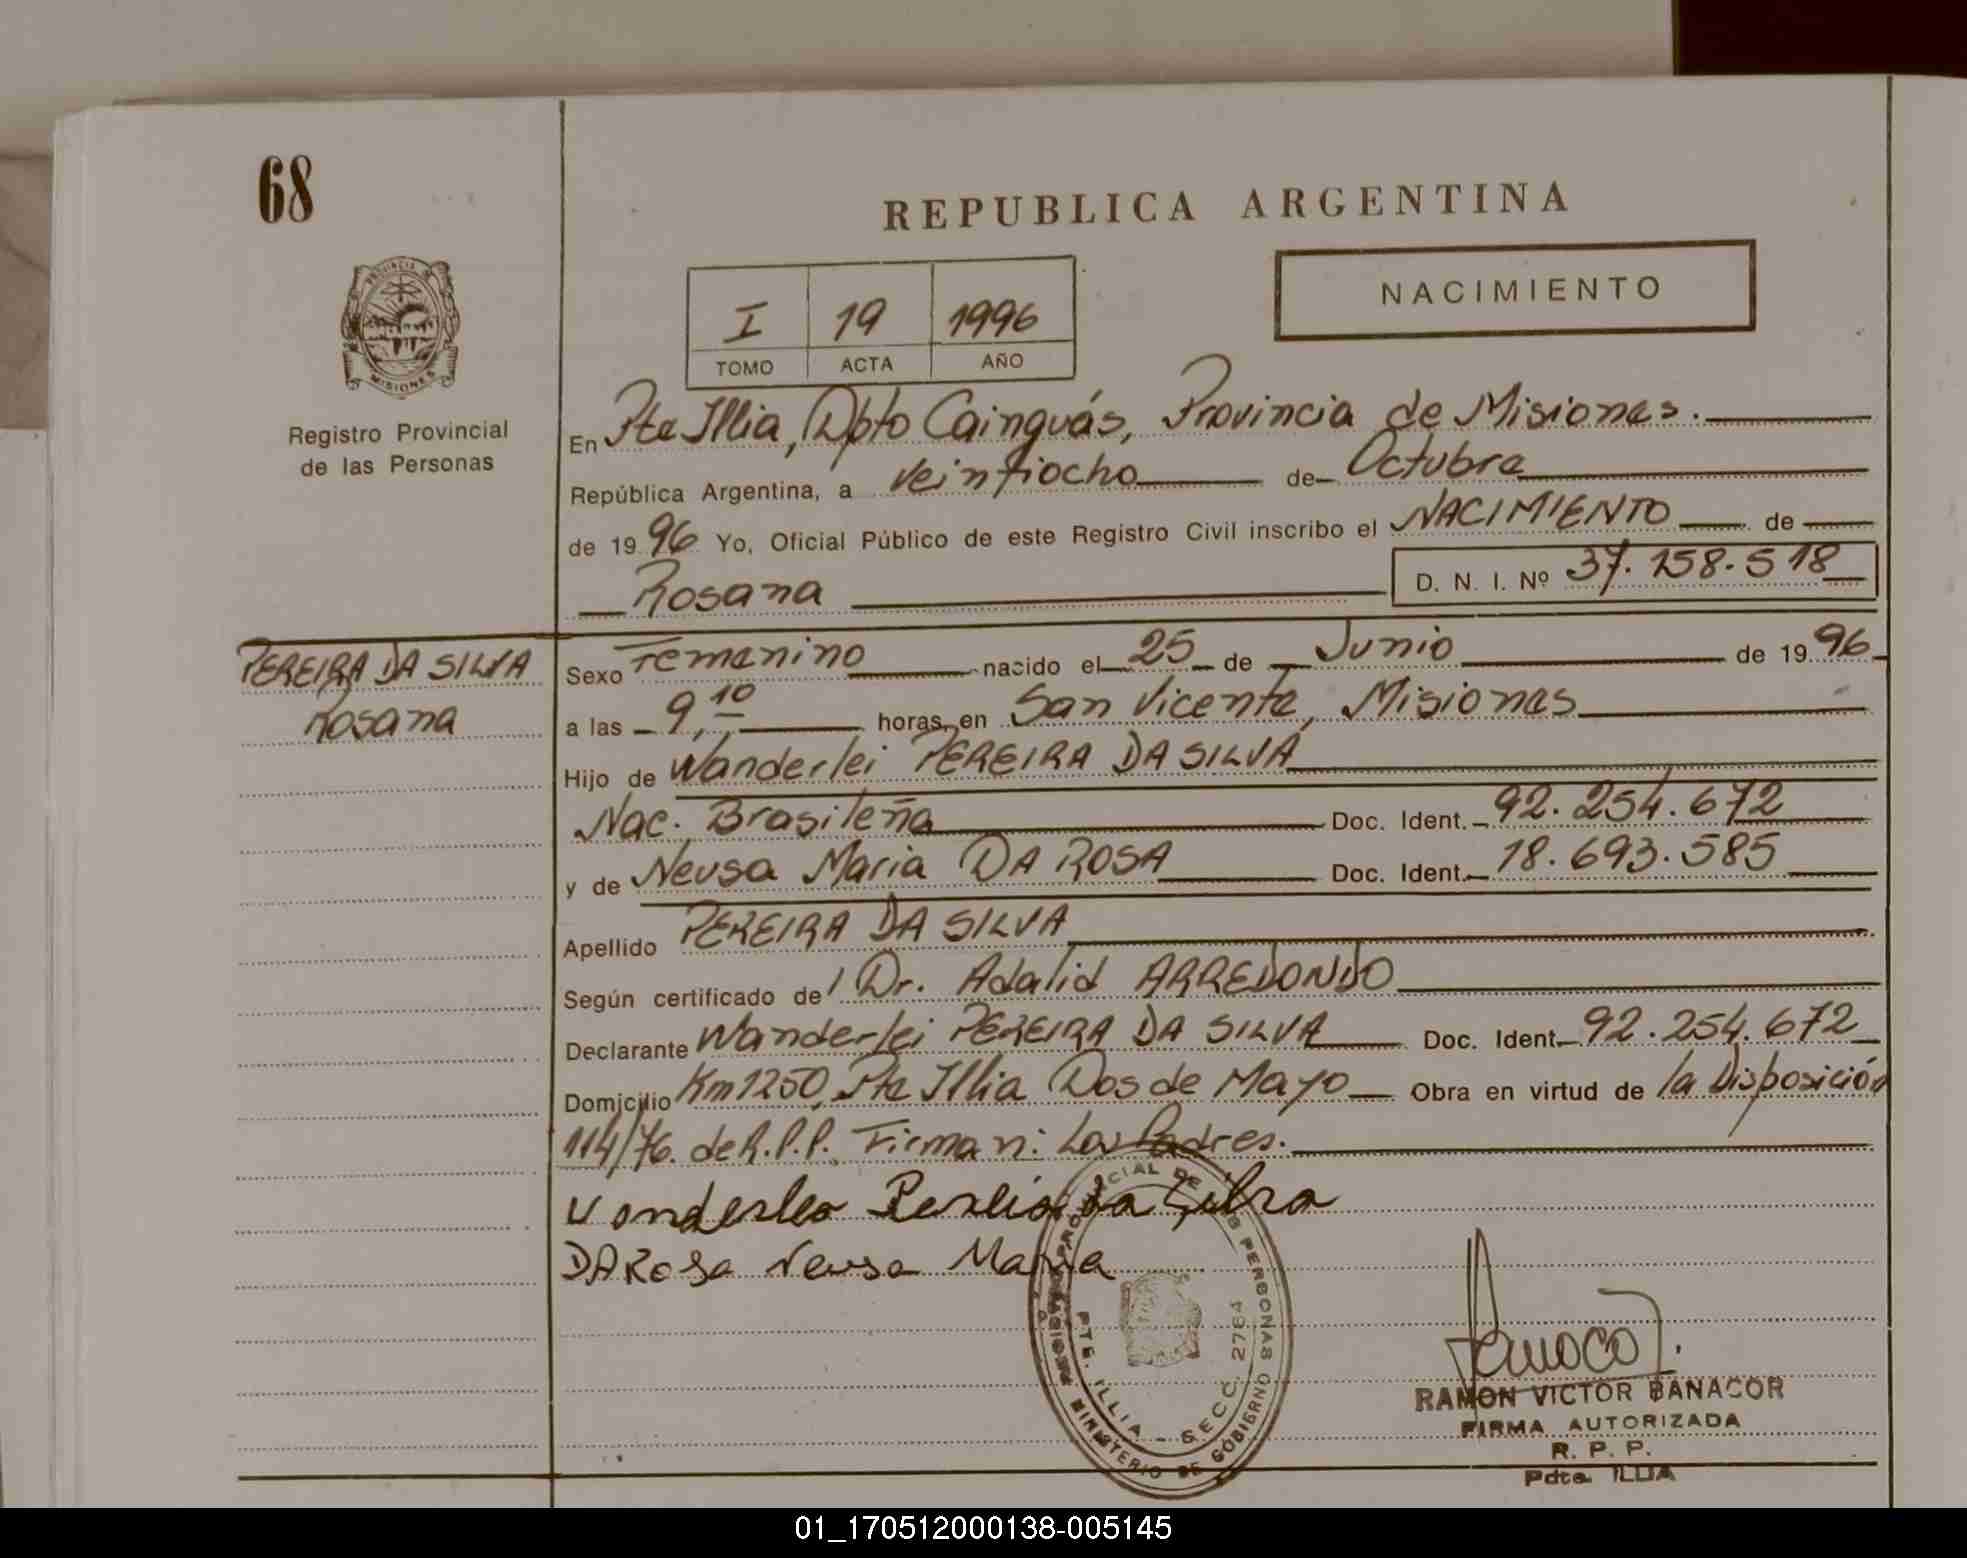 68
REPUBLICA ARGENTINA
PROVINCIA DE
MISIONES
Registro Provincial
de las Personas
I 19 1996
TOMO ACTA AÑO
NACIMIENTO
En Pte Illia, Dpto Cainguás, Provincia de Misiones.
República Argentina, a veintiocho de Octubre
de 1996 Yo, Oficial Público de este Registro Civil inscribo el NACIMIENTO de
Rosana D. N. I. Nº 37.158.518
PEREIRA DA SILVA
Rosana
Sexo Femenino nacido el 25 de Junio de 1996
a las 9,10 horas, en San Vicente, Misiones
Hijo de Wanderlei PEREIRA DA SILVA
Nac. Brasileña Doc. Ident. 92.254.672
y de Neusa Maria DA ROSA Doc. Ident. 18.693.585
Apellido PEREIRA DA SILVA
Según certificado de Dr. Adalid ARREDONDO
Declarante Wanderlei PEREIRA DA SILVA Doc. Ident. 92.254.672
Domicilio Km 1250, Pte Illia Dos de Mayo Obra en virtud de la Disposición
114/76. de R.P.P. Firman: Los Padres.
DA Rosa Neusa Maria
PTE. ILLIA - SECC. 2764
MINISTERIO DE GOBIERNO
RAMON VICTOR BANACOR
FIRMA AUTORIZADA
R. P. P.
Pdte. ILLIA
01_170512000138-005145